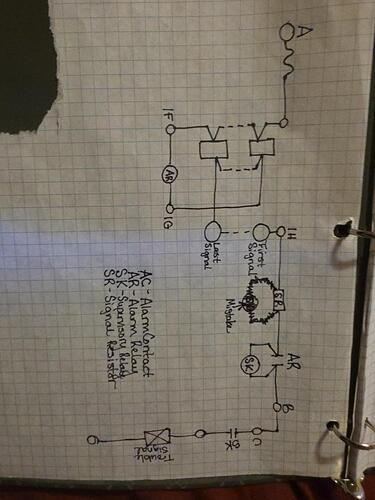 A
1F
AR
1G
1H
First
Signal
Last
Signal
SR
Mistake
AR
SK
B
C
SK
Trouble
Signal
AC - Alarm Contact
AR - Alarm Relay
SK - Supervisory Relay
SR - Signal Resistor